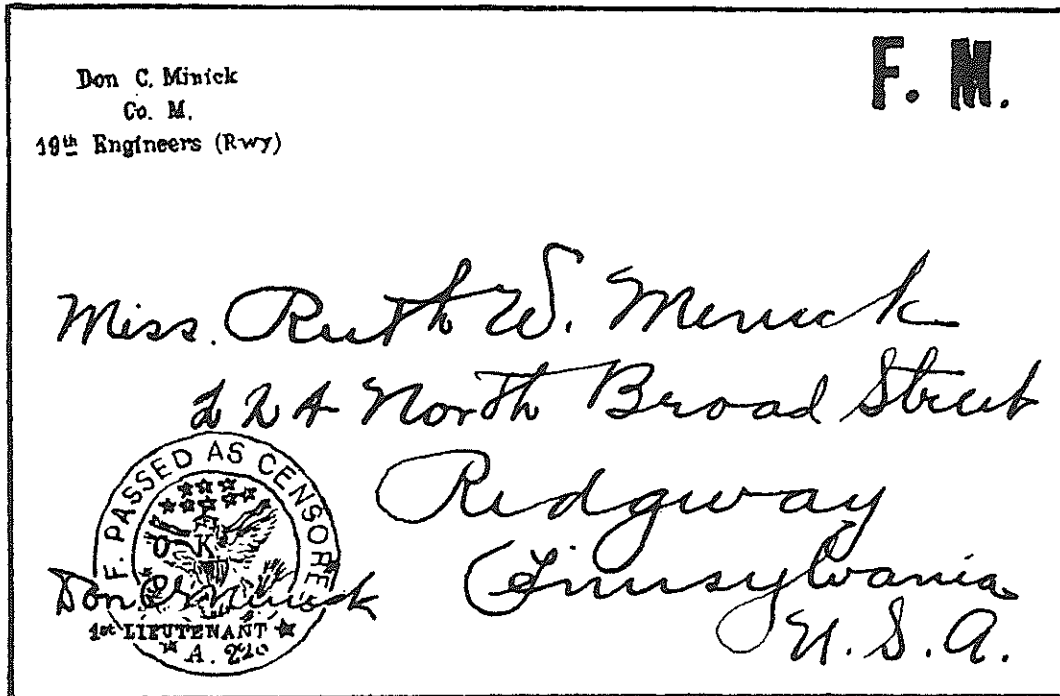 Don C. Minick
Co. M.
19th Engineers (Rwy)
F. M.
Miss. Ruth W. Minick
224 North Broad Street
Ridgway
Pennsylvania
U. S. A.
F. PASSED AS CENSORED
O K
Don C. Minick
1st LIEUTENANT
A. 220